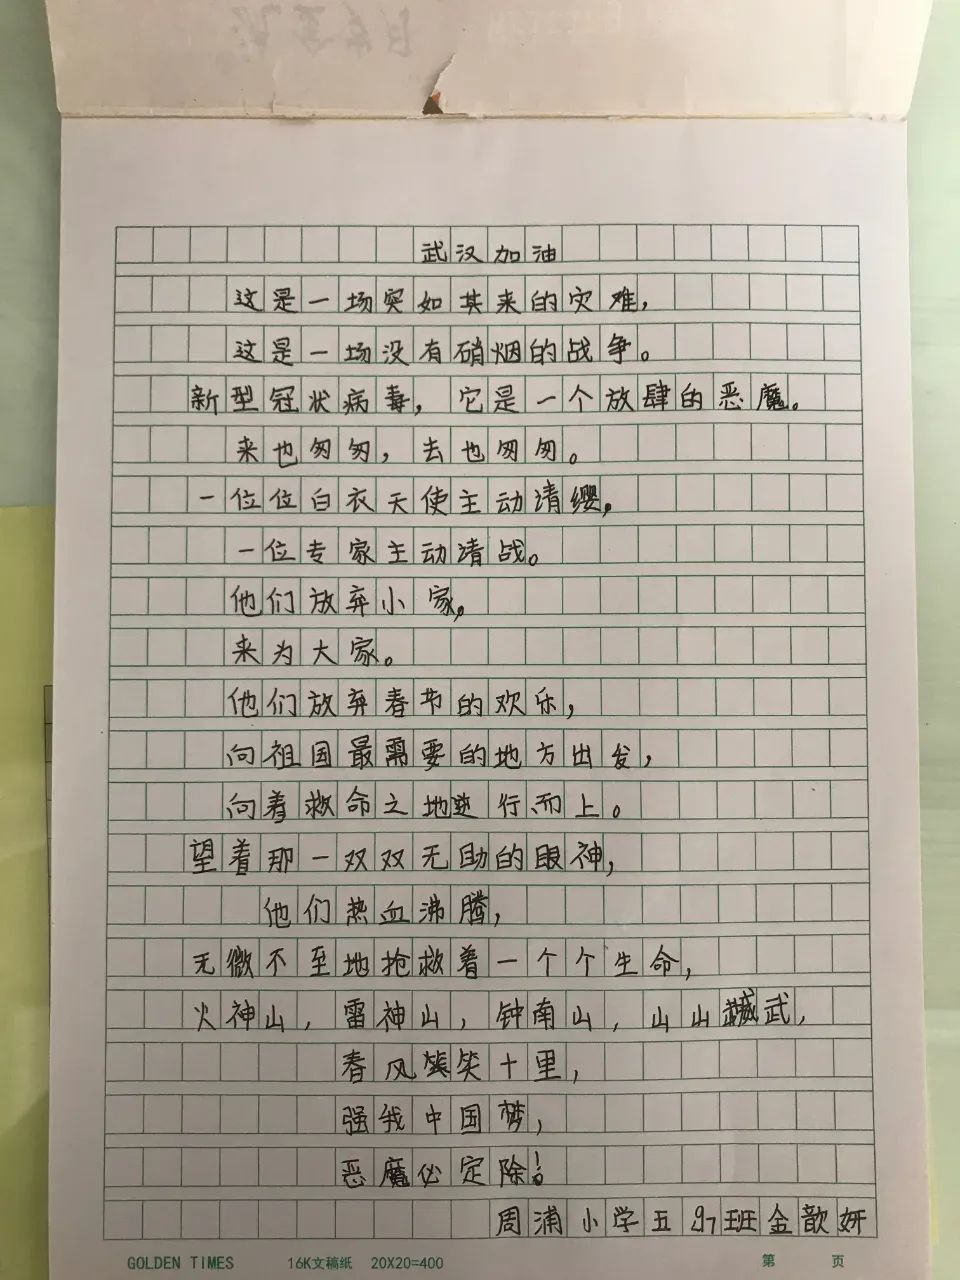 武汉加油
这是一场突如其来的灾难，
这是一场没有硝烟的战争。
新型冠状病毒，它是一个放肆的恶魔。
来也匆匆，去也匆匆。
一位位白衣天使主动清缨，
一位专家主动清战。
他们放弃小家，
来为大家。
他们放弃春节的欢乐，
向祖国最需要的地方出发，
向着救命之地逆行而上。
望着那一双双无助的眼神，
他们热血沸腾，
无微不至地抢救着一个个生命，
火神山，雷神山，钟南山，山山武，
春风笑十里，
强我中国梦，
恶魔必定除！
周浦小学五班金歆妍
GOLDEN TIMES 16K文稿纸 20X20=400 第 页